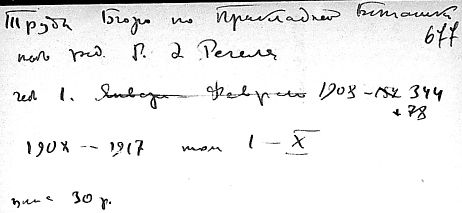 Труды Бюро по Прикладной Ботанике
677
под ред. Р. Э. Регеля
год 1. Январь - Февраль 1908 - 344
+78
1908 -- 1917 том I - X
цена 30 р.